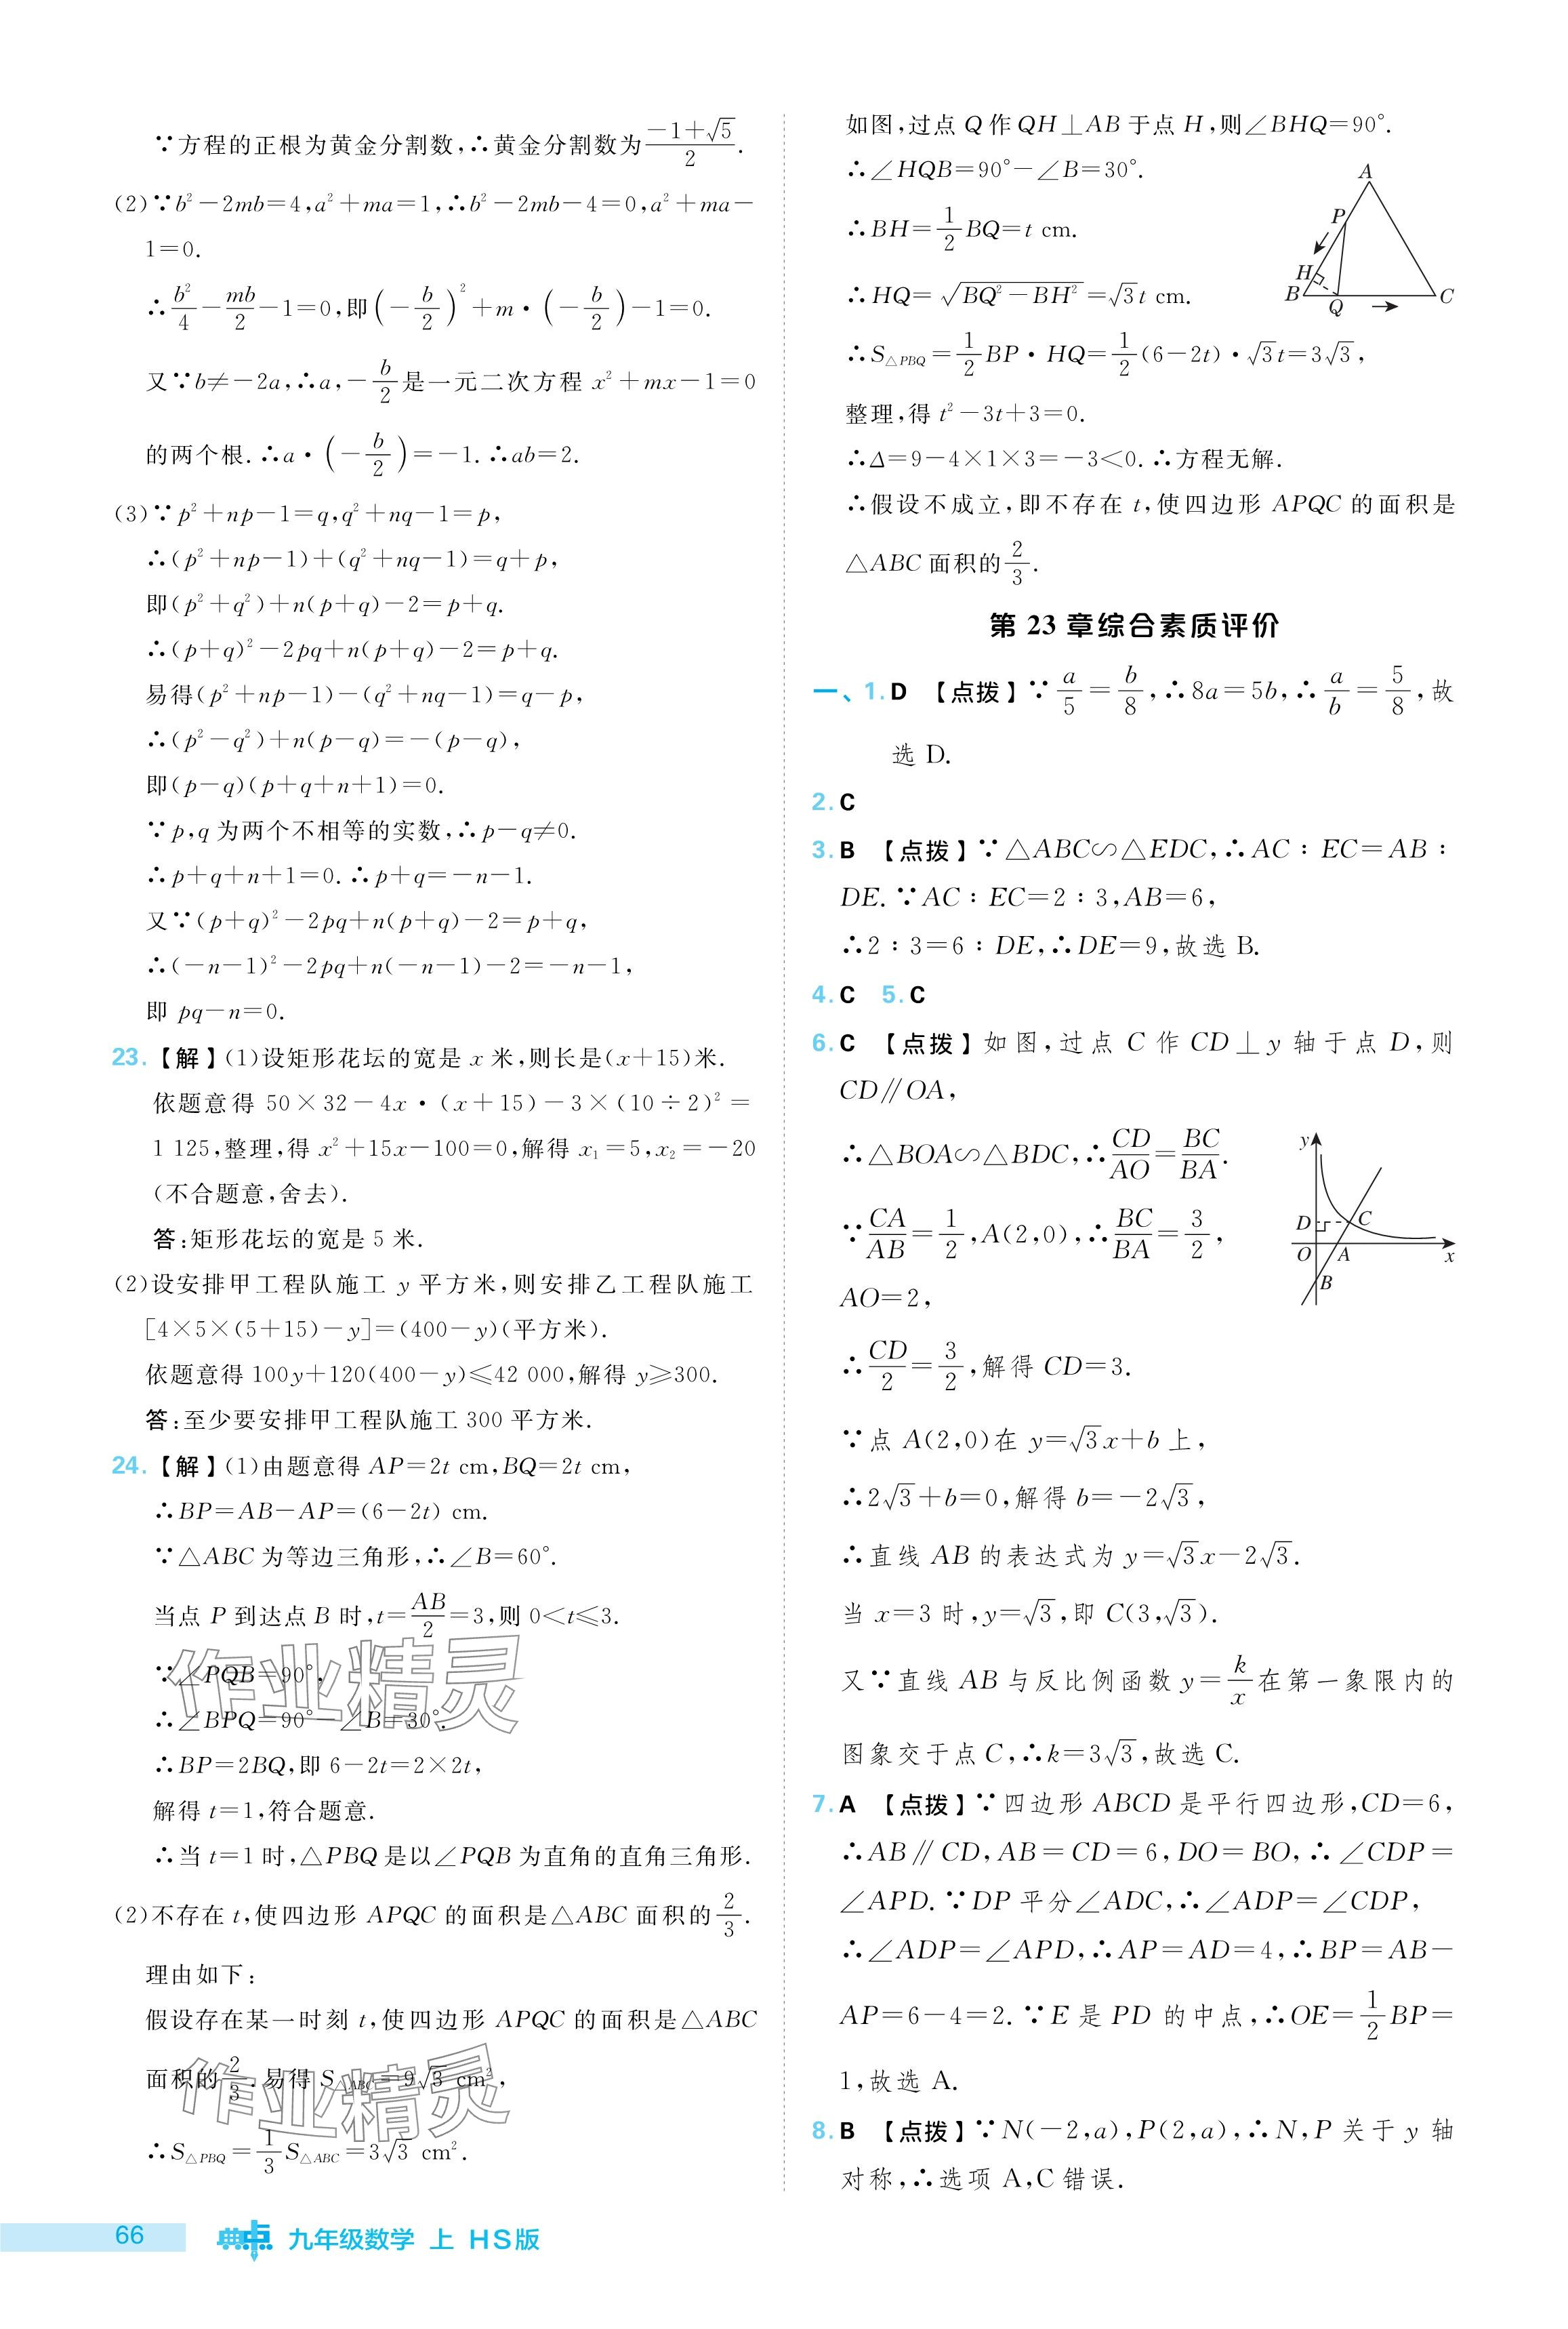 ∵方程的正根为黄金分割数,∴黄金分割数为(-1+√5)/2.
(2)∵b²-2mb=4,a²+ma=1,∴b²-2mb-4=0,a²+ma-
1=0.
∴b²/4-mb/2-1=0,即(-b/2)²+m·(-b/2)-1=0.
又∵b≠-2a,∴a,-b/2是一元二次方程 x²+mx-1=0
的两个根.∴a·(-b/2)=-1.∴ab=2.
(3)∵p²+np-1=q,q²+nq-1=p,
∴(p²+np-1)+(q²+nq-1)=q+p,
即(p²+q²)+n(p+q)-2=p+q.
∴(p+q)²-2pq+n(p+q)-2=p+q.
易得(p²+np-1)-(q²+nq-1)=q-p,
∴(p²-q²)+n(p-q)=-(p-q),
即(p-q)(p+q+n+1)=0.
∵p,q为两个不相等的实数,∴p-q≠0.
∴p+q+n+1=0.∴p+q=-n-1.
又∵(p+q)²-2pq+n(p+q)-2=p+q,
∴(-n-1)²-2pq+n(-n-1)-2=-n-1,
即 pq-n=0.
23.【解】(1)设矩形花坛的宽是 x 米,则长是(x+15)米.
依题意得 50×32-4x·(x+15)-3×(10÷2)²=
1 125,整理,得 x²+15x-100=0,解得 x₁=5,x₂=-20
(不合题意,舍去).
答:矩形花坛的宽是 5 米.
(2)设安排甲工程队施工 y 平方米,则安排乙工程队施工
[4×5×(5+15)-y]=(400-y)(平方米).
依题意得100y+120(400-y)≤42 000,解得 y≥300.
答:至少要安排甲工程队施工 300 平方米.
24.【解】(1)由题意得 AP=2t cm,BQ=2t cm,
∴BP=AB-AP=(6-2t) cm.
∵△ABC为等边三角形,∴∠B=60°.
当点 P 到达点 B 时,t=AB/2=3,则 0<t≤3.
∵∠PQB=90°,
∴∠BPQ=90°-∠B=30°.
∴BP=2BQ,即 6-2t=2×2t,
解得 t=1,符合题意.
∴当 t=1 时,△PBQ是以∠PQB为直角的直角三角形.
(2)不存在 t,使四边形 APQC 的面积是△ABC 面积的2/3.
理由如下:
假设存在某一时刻 t,使四边形 APQC 的面积是△ABC
面积的2/3.易得 S△ABC=9√3 cm²,
∴S△PBQ=1/3S△ABC=3√3 cm².
作业精灵
作业精灵
如图,过点 Q作 QH⊥AB 于点 H,则∠BHQ=90°.
∴∠HQB=90°-∠B=30°.
∴BH=1/2BQ=t cm.
∴HQ=√(BQ²-BH²)=√3t cm.
A
P
H
B
Q
C
∴S△PBQ=1/2BP·HQ=1/2(6-2t)·√3t=3√3,
整理,得 t²-3t+3=0.
∴Δ=9-4×1×3=-3<0.∴方程无解.
∴假设不成立,即不存在 t,使四边形 APQC 的面积是
△ABC面积的2/3.
第 23 章综合素质评价
一、1.D 【点拨】∵a/5=b/8,∴8a=5b,∴a/b=5/8,故
选 D.
2.C
3.B 【点拨】∵△ABC∽△EDC,∴AC∶EC=AB∶
DE.∵AC∶EC=2∶3,AB=6,
∴2∶3=6∶DE,∴DE=9,故选 B.
4.C 5.C
6.C 【点拨】如图,过点 C 作 CD⊥y 轴于点 D,则
CD∥OA,
∴△BOA∽△BDC,∴CD/AO=BC/BA.
∵CA/AB=1/2,A(2,0),∴BC/BA=3/2,
AO=2,
y
D
C
O
A
x
B
∴CD/2=3/2,解得 CD=3.
∵点 A(2,0)在 y=√3x+b 上,
∴2√3+b=0,解得 b=-2√3,
∴直线 AB 的表达式为 y=√3x-2√3.
当 x=3 时,y=√3,即 C(3,√3).
又∵直线 AB 与反比例函数 y=k/x在第一象限内的
图象交于点 C,∴k=3√3,故选 C.
7.A 【点拨】∵四边形 ABCD 是平行四边形,CD=6,
∴AB∥CD,AB=CD=6,DO=BO,∴∠CDP=
∠APD.∵DP 平分∠ADC,∴∠ADP=∠CDP,
∴∠ADP=∠APD,∴AP=AD=4,∴BP=AB-
AP=6-4=2.∵E 是 PD 的中点,∴OE=1/2BP=
1,故选 A.
8.B 【点拨】∵N(-2,a),P(2,a),∴N,P 关于 y 轴
对称,∴选项 A,C 错误.
66 典中点 九年级数学 上 HS版